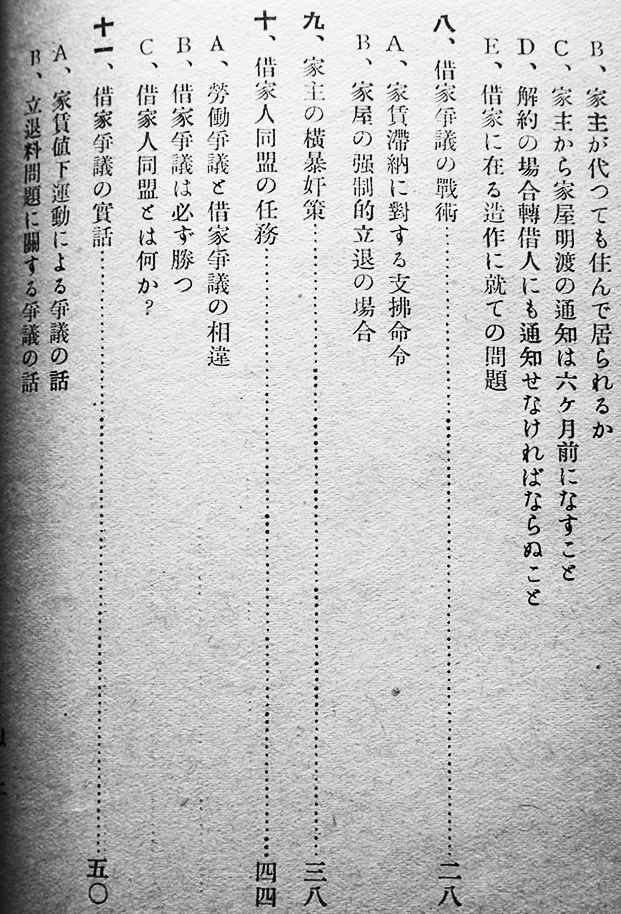 B、家主が代つても住んで居られるか
C、家主から家屋明渡の通知は六ケ月前になすこと
D、解約の場合轉借人にも通知せなければならぬこと
E、借家に在る造作に就ての問題
八、借家爭議の戰術…………二八
A、家賃滯納に對する支拂命令
B、家屋の强制的立退の場合
九、家主の橫暴奸策…………三八
十、借家人同盟の任務…………四四
A、勞働爭議と借家爭議の相違
B、借家爭議は必ず勝つ
C、借家人同盟とは何か？
十一、借家爭議の實話…………五〇
A、家賃値下運動による爭議の話
B、立退料問題に關する爭議の話